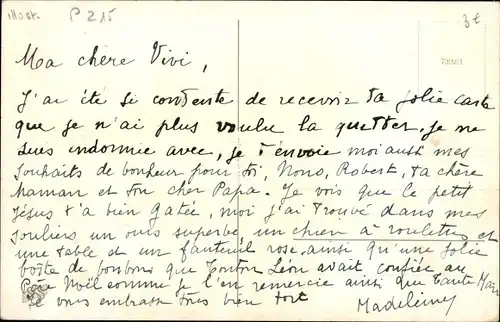 illost. P 215 3€
Ma chère Vivi,
J'ai été si contente de recevoir ta jolie carte
que je n'ai plus voulu la quitter, je me
suis indormie avec, je t'envoie moi aussi mes
souhaits de bonheur pour toi, Nono, Robert, ta chère
maman et ton cher Papa. Je vois que le petit
Jésus t'a bien gatée, moi j'ai trouvé dans mes
souliers un ours superbe un chien à roulettes et
une table et un fauteuil rose, ainsi qu'une jolie
boîte de bonbons que tonton Léon avait confiée au
Père Noël comme je l'en remercie ainsi que tante
Je vous embrasse tous bien fort